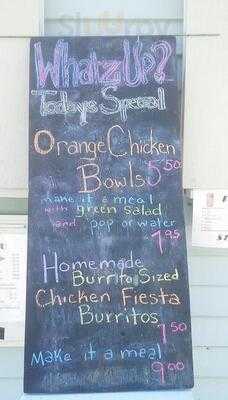 WhatzUp?
Todays Special
Orange Chicken
Bowls 5.50
make it a meal
with green salad
and pop or water
7.95
Homemade
Burrito Sized
Chicken Fiesta
Burritos
7.50
Make it a meal
9.00